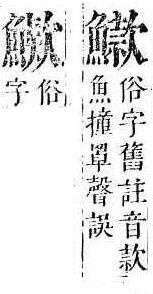 俗字舊註音款
魚撞罩聲誤
俗
字